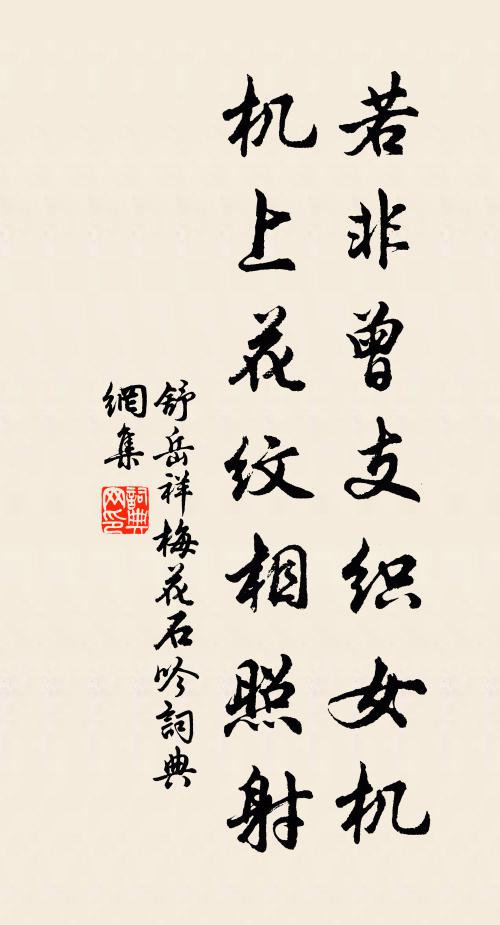 若非曾支织女机
机上花纹相照射
舒岳祥梅花石吟詞典
網集
詞典网印